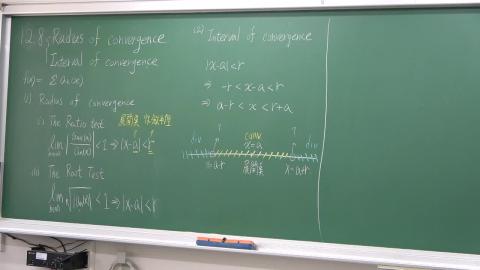 12.8 Radius of convergence
Interval of convergence
f(x) = Σ an(x)
(i) Radius of convergence
(i) The Ratio test 展開点 收斂半徑
lim n→∞ |an+1(x)/an(x)| < 1 ⇒ |x-a| < r
(ii) The Root Test
lim n→∞ n√|an(x)| < 1 ⇒ |x-a| < r
(2) Interval of convergence
|x-a| < r
⇒ -r < x-a < r
⇒ a-r < x < r+a
? conv ?
div x=a div
x=a-r 展開点 x=a+r